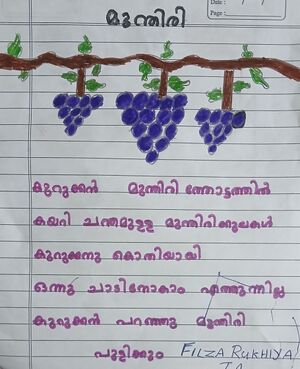 Date :
Page :
മുന്തിരി
കുറുക്കൻ മുന്തിരി ത്തോട്ടത്തിൽ
കയറി ചന്തമുളള മുന്തിരിക്കുലകൾ
കുറുക്കനു കൊതിയായി
ഒന്നു ചാടിനോകാം എത്തുന്നില്ല
കുറുക്കൻ പറഞ്ഞു മുന്തിരി
പുളിക്കും FILZA RUKHIYA